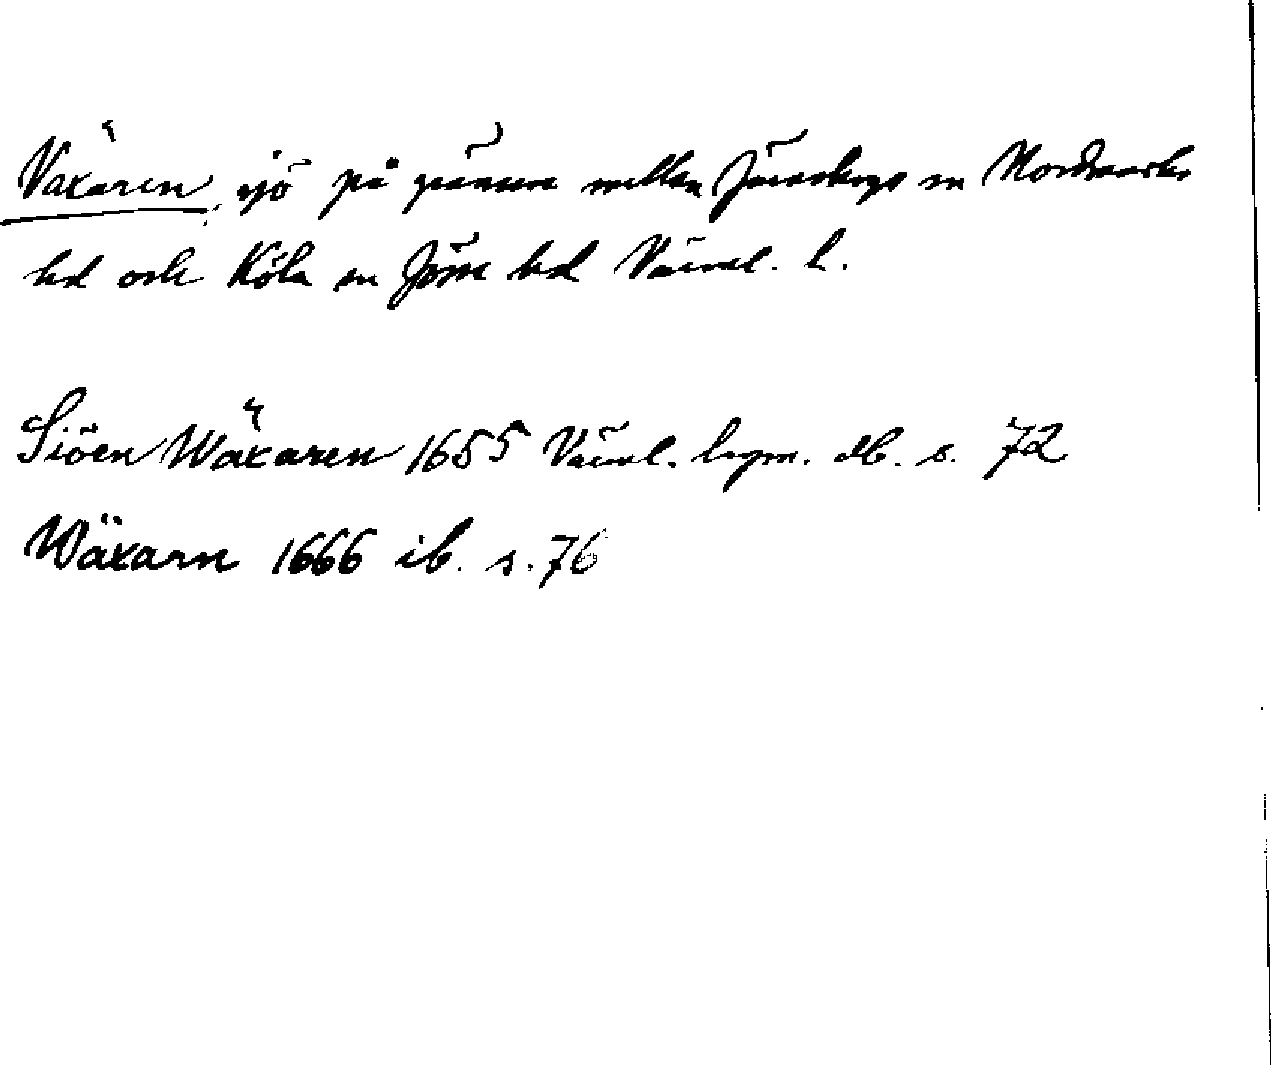 Växaren, sjö på gränsen mellan Järnskogs sn Nordmarks
hd och Köla sn Jösse hd Värml. l.
Siöen Wäxaren 1655 Värml. hsgm. db. s. 72
Wäxarn 1666 ib. s. 76